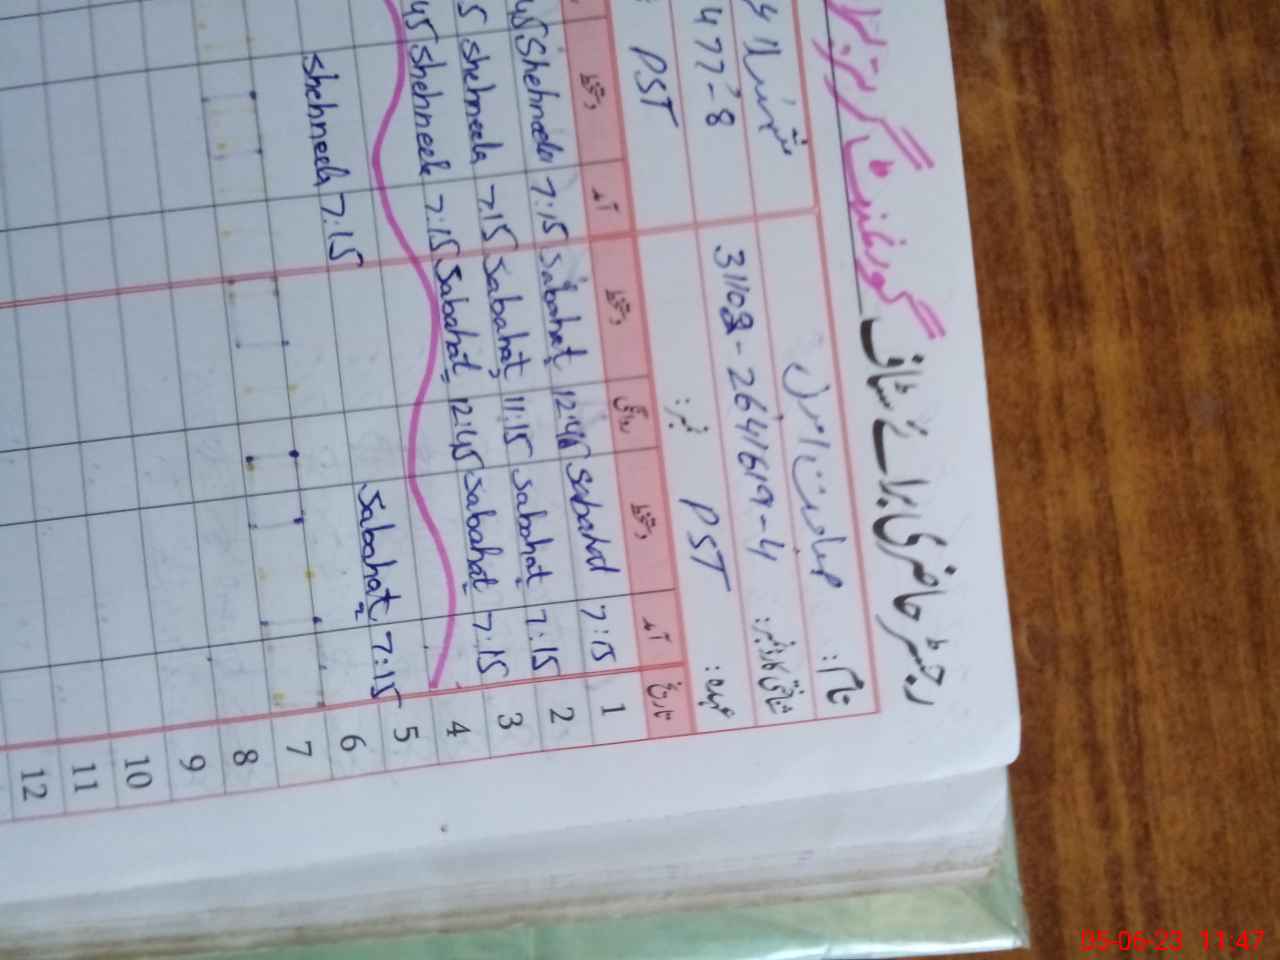 رجسٹر حاضری برائے سٹاف گورنمنٹ گرلز
نام: صباحت امرل شہنیلا
شناختی کارڈ نمبر: 31108-2641619-4 477-8
عہدہ: PST نمبر: PST
تاریخ آمد دستخط روانگی دستخط آمد دستخط
1 7:15 Sabahat 12:45 Sabahat 7:15 Shehneela 45
2 7:15 Sabahat 11:15 Sabahat 7:15 Shehneela 5
3 7:15 Sabahat 12:45 Sabahat 7:15 Shehneela 45
4
5 7:15 Sabahat 7:15 Shehneela
6
7
8
9
10
11
12
05-06-23 11:47